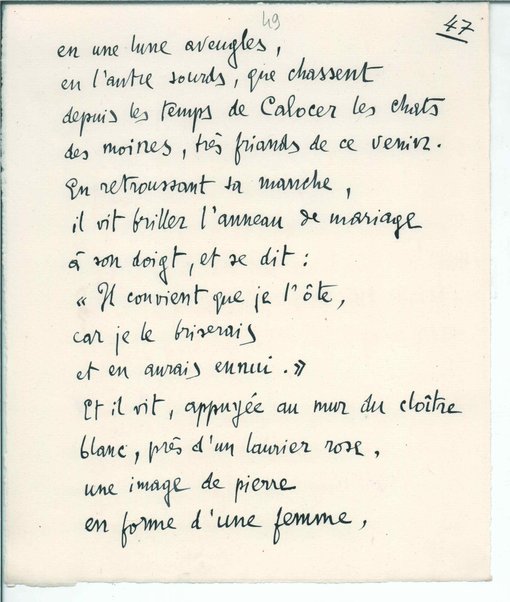 49
47
en une lune aveugles,
en l'autre sourds, que chassent
depuis les temps de Calocer les chats
des moines, très friands de ce venin.
En retroussant sa manche,
il vit briller l'anneau de mariage
à son doigt, et se dit :
« Il convient que je l'ôte,
car je le briserais
et en aurais ennui. »
Et il vit, appuyée au mur du cloître
blanc, près d'un laurier rose,
une image de pierre
en forme d'une femme,